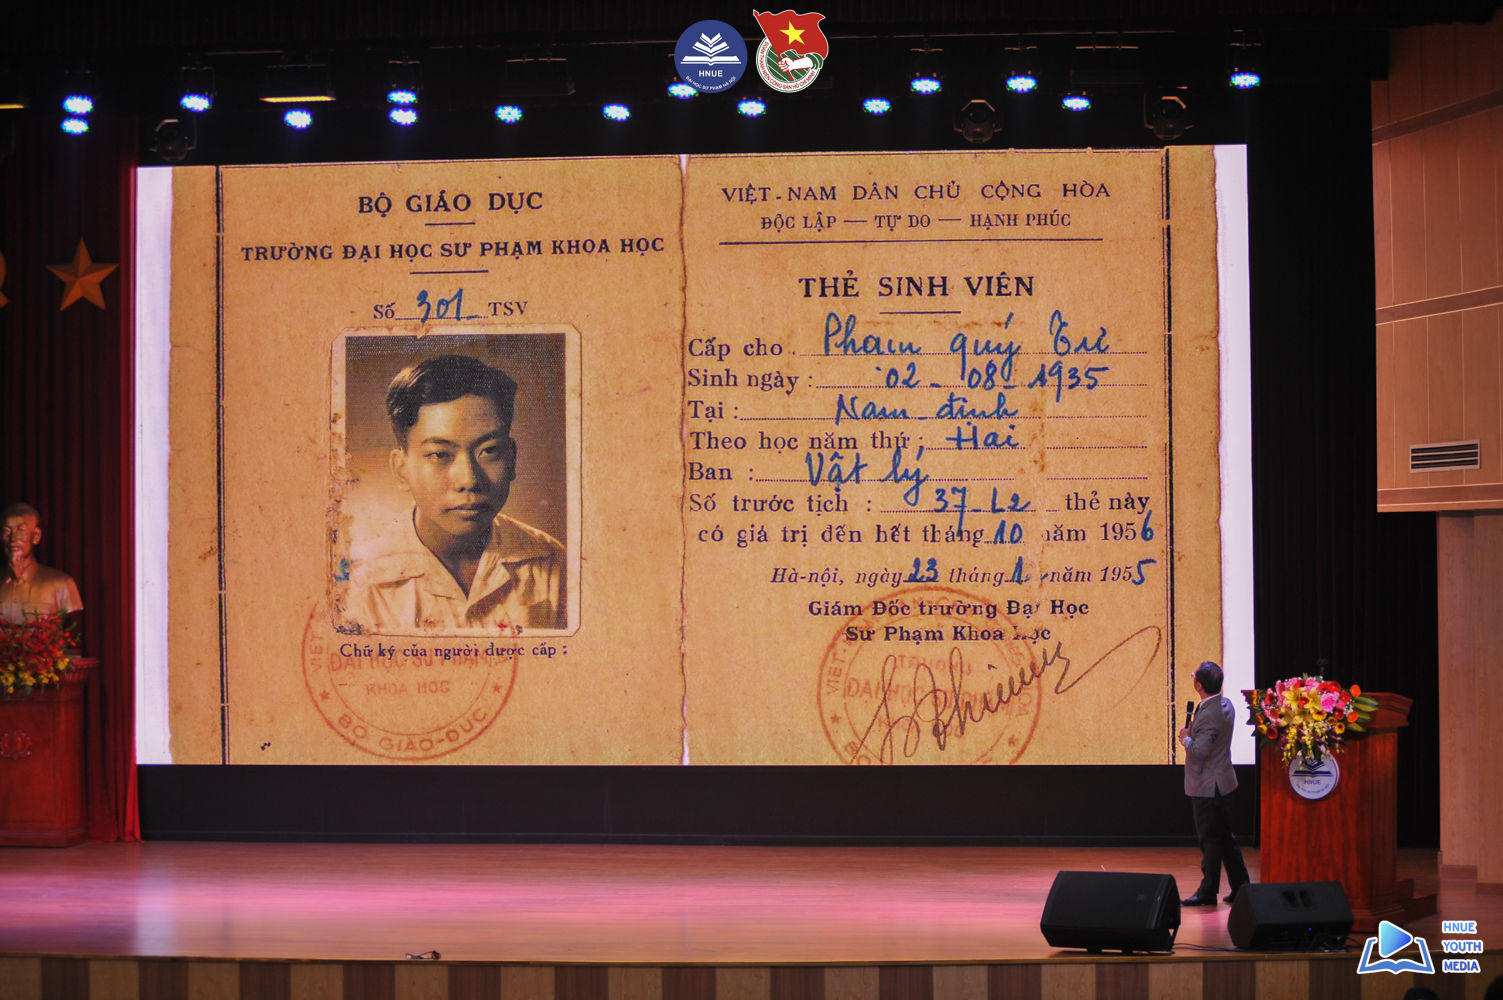 HNUE
ĐẠI HỌC SƯ PHẠM HÀ NỘI
BỘ GIÁO DỤC
TRƯỜNG ĐẠI HỌC SƯ PHẠM KHOA HỌC
Số 301 TSV
Chữ ký của người được cấp :
ĐẠI HỌC SƯ PHẠM
KHOA HỌC
BỘ GIÁO-DỤC
VIỆT-NAM DÂN CHỦ CỘNG HÒA
ĐỘC LẬP — TỰ DO — HẠNH PHÚC
THẺ SINH VIÊN
Cấp cho Phạm quý Tư
Sinh ngày : 02-08-1935
Tại : Nam-định
Theo học năm thứ : Hai
Ban : Vật lý
Số trước tịch : 37-L2 thẻ này
có giá trị đến hết tháng 10 năm 1956
Hà-nội, ngày 23 tháng 1 năm 1955
Giám Đốc trường Đại Học
Sư Phạm Khoa Học
TRƯỜNG
ĐẠI HỌC SƯ PHẠM
HNUE
HNUE
YOUTH
MEDIA